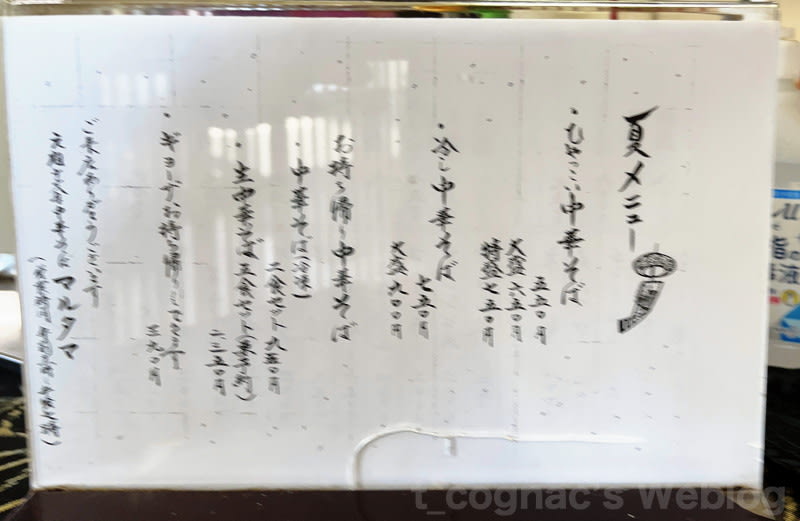 夏メニュー
・ひやっこい中華そば
五五〇円
大盛 六五〇円
特盛 七五〇円
・冷し中華そば
七五〇円
大盛 九〇〇円
お持ち帰り中華そば
・中華そば(冷凍)
二食セット 九五〇円
・生中華そば 五食セット(要予約)
二二五〇円
・ギョーザお持ち帰りできます
三九〇円
ご来店ありがとうございます
マルタマ
t_cognac's Weblog